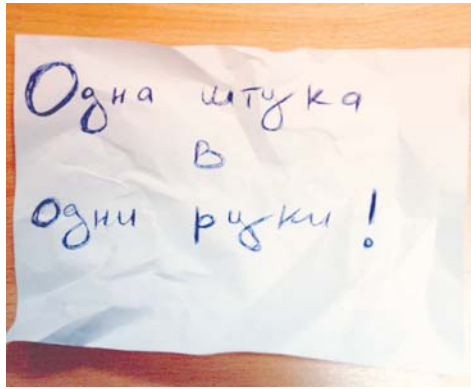 Одна штука
в
одни руки!